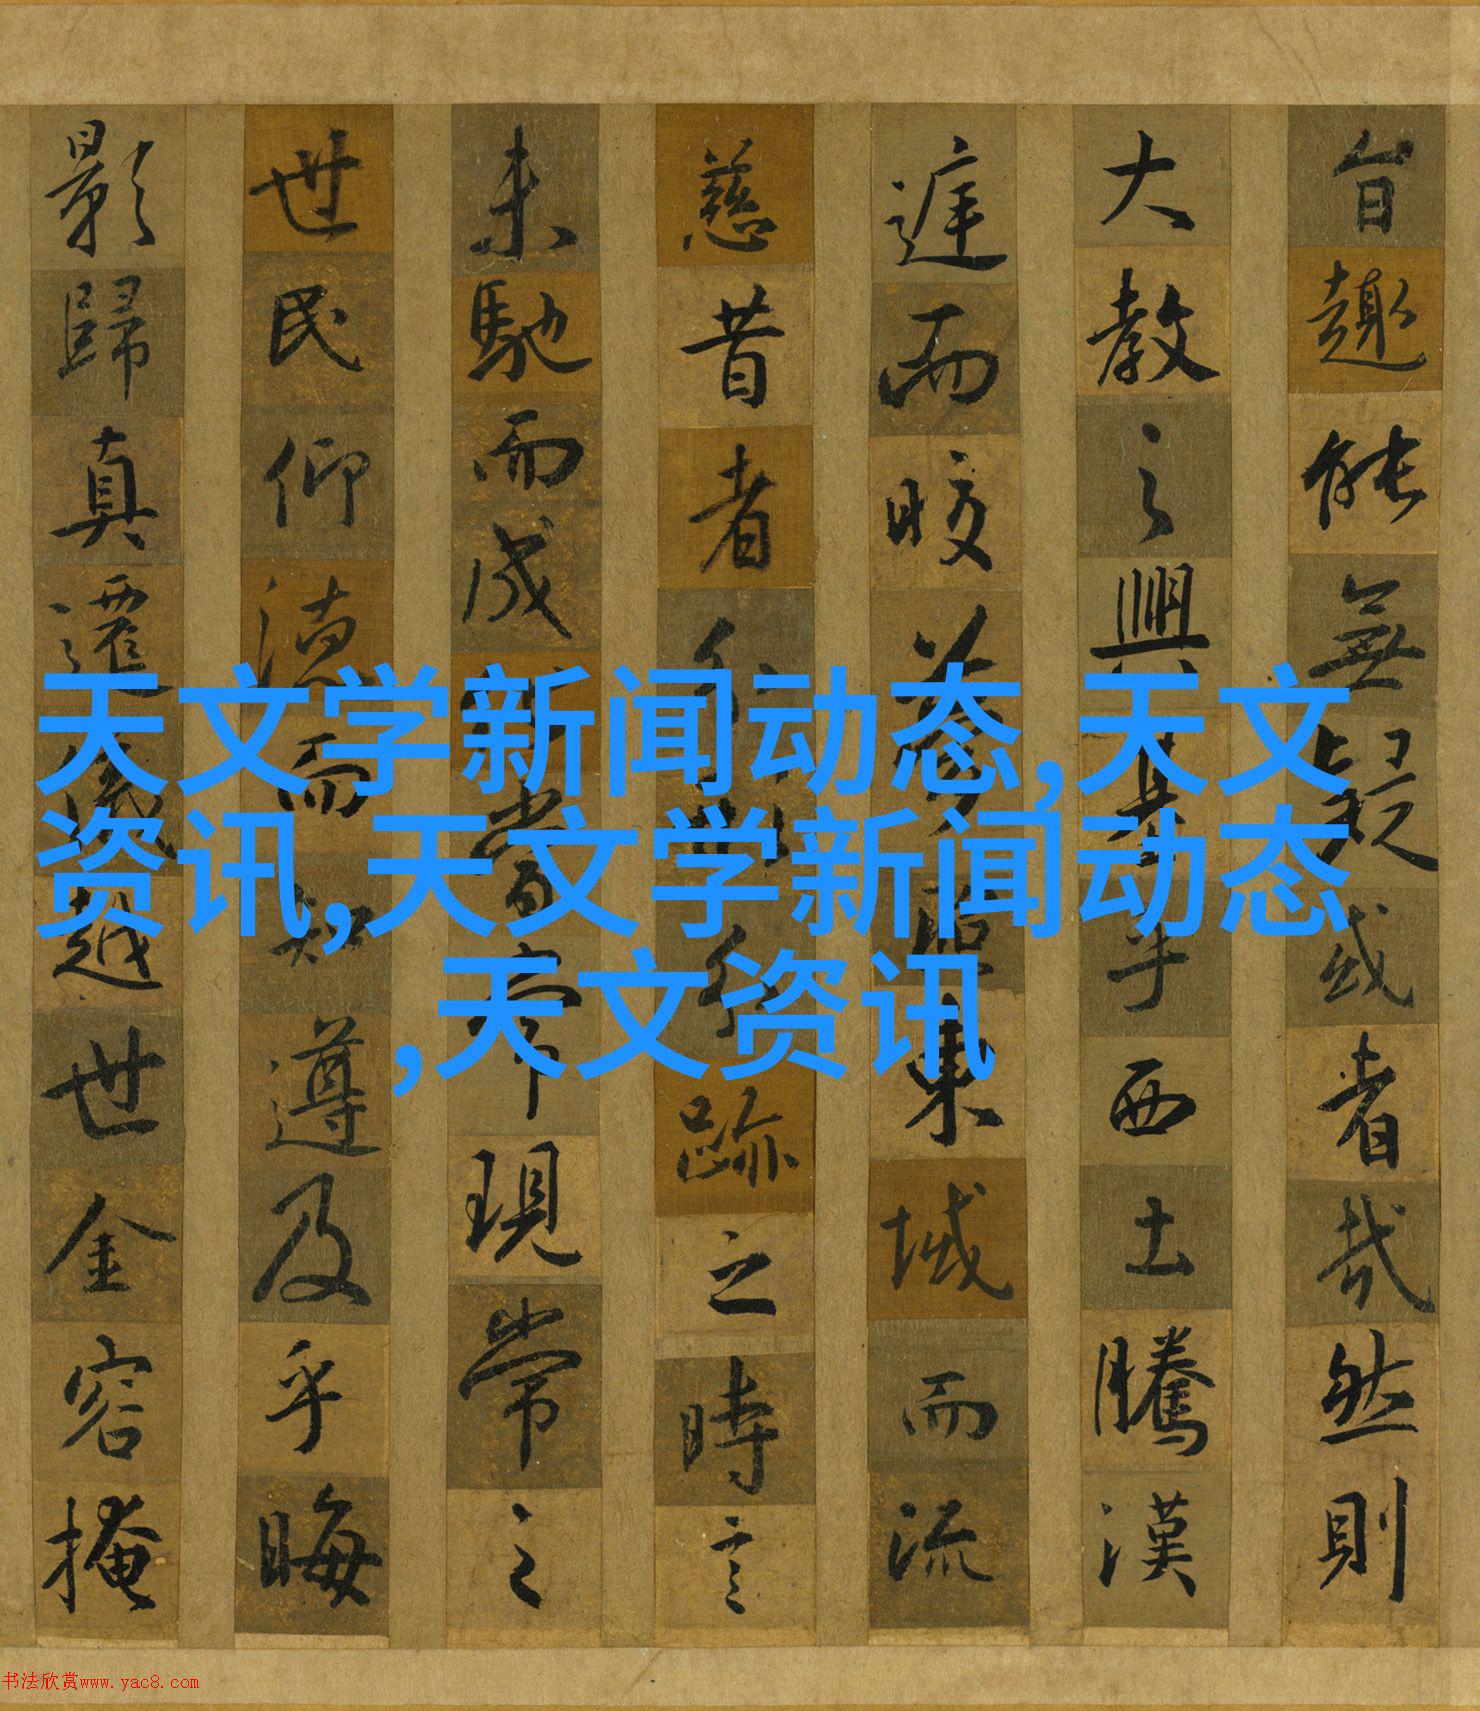 旨趣能無疑或者哉然則
大教之興基乎西土騰漢
庭而皎夢照東域而流
慈昔者分形分跡之時言
未馳而成化當常現常之
世民仰德而知遵及乎晦
影歸真遷儀越世金容掩
天文学新闻动态,天文
资讯,天文学新闻动态
,天文资讯
书法欣赏www.yac8.com